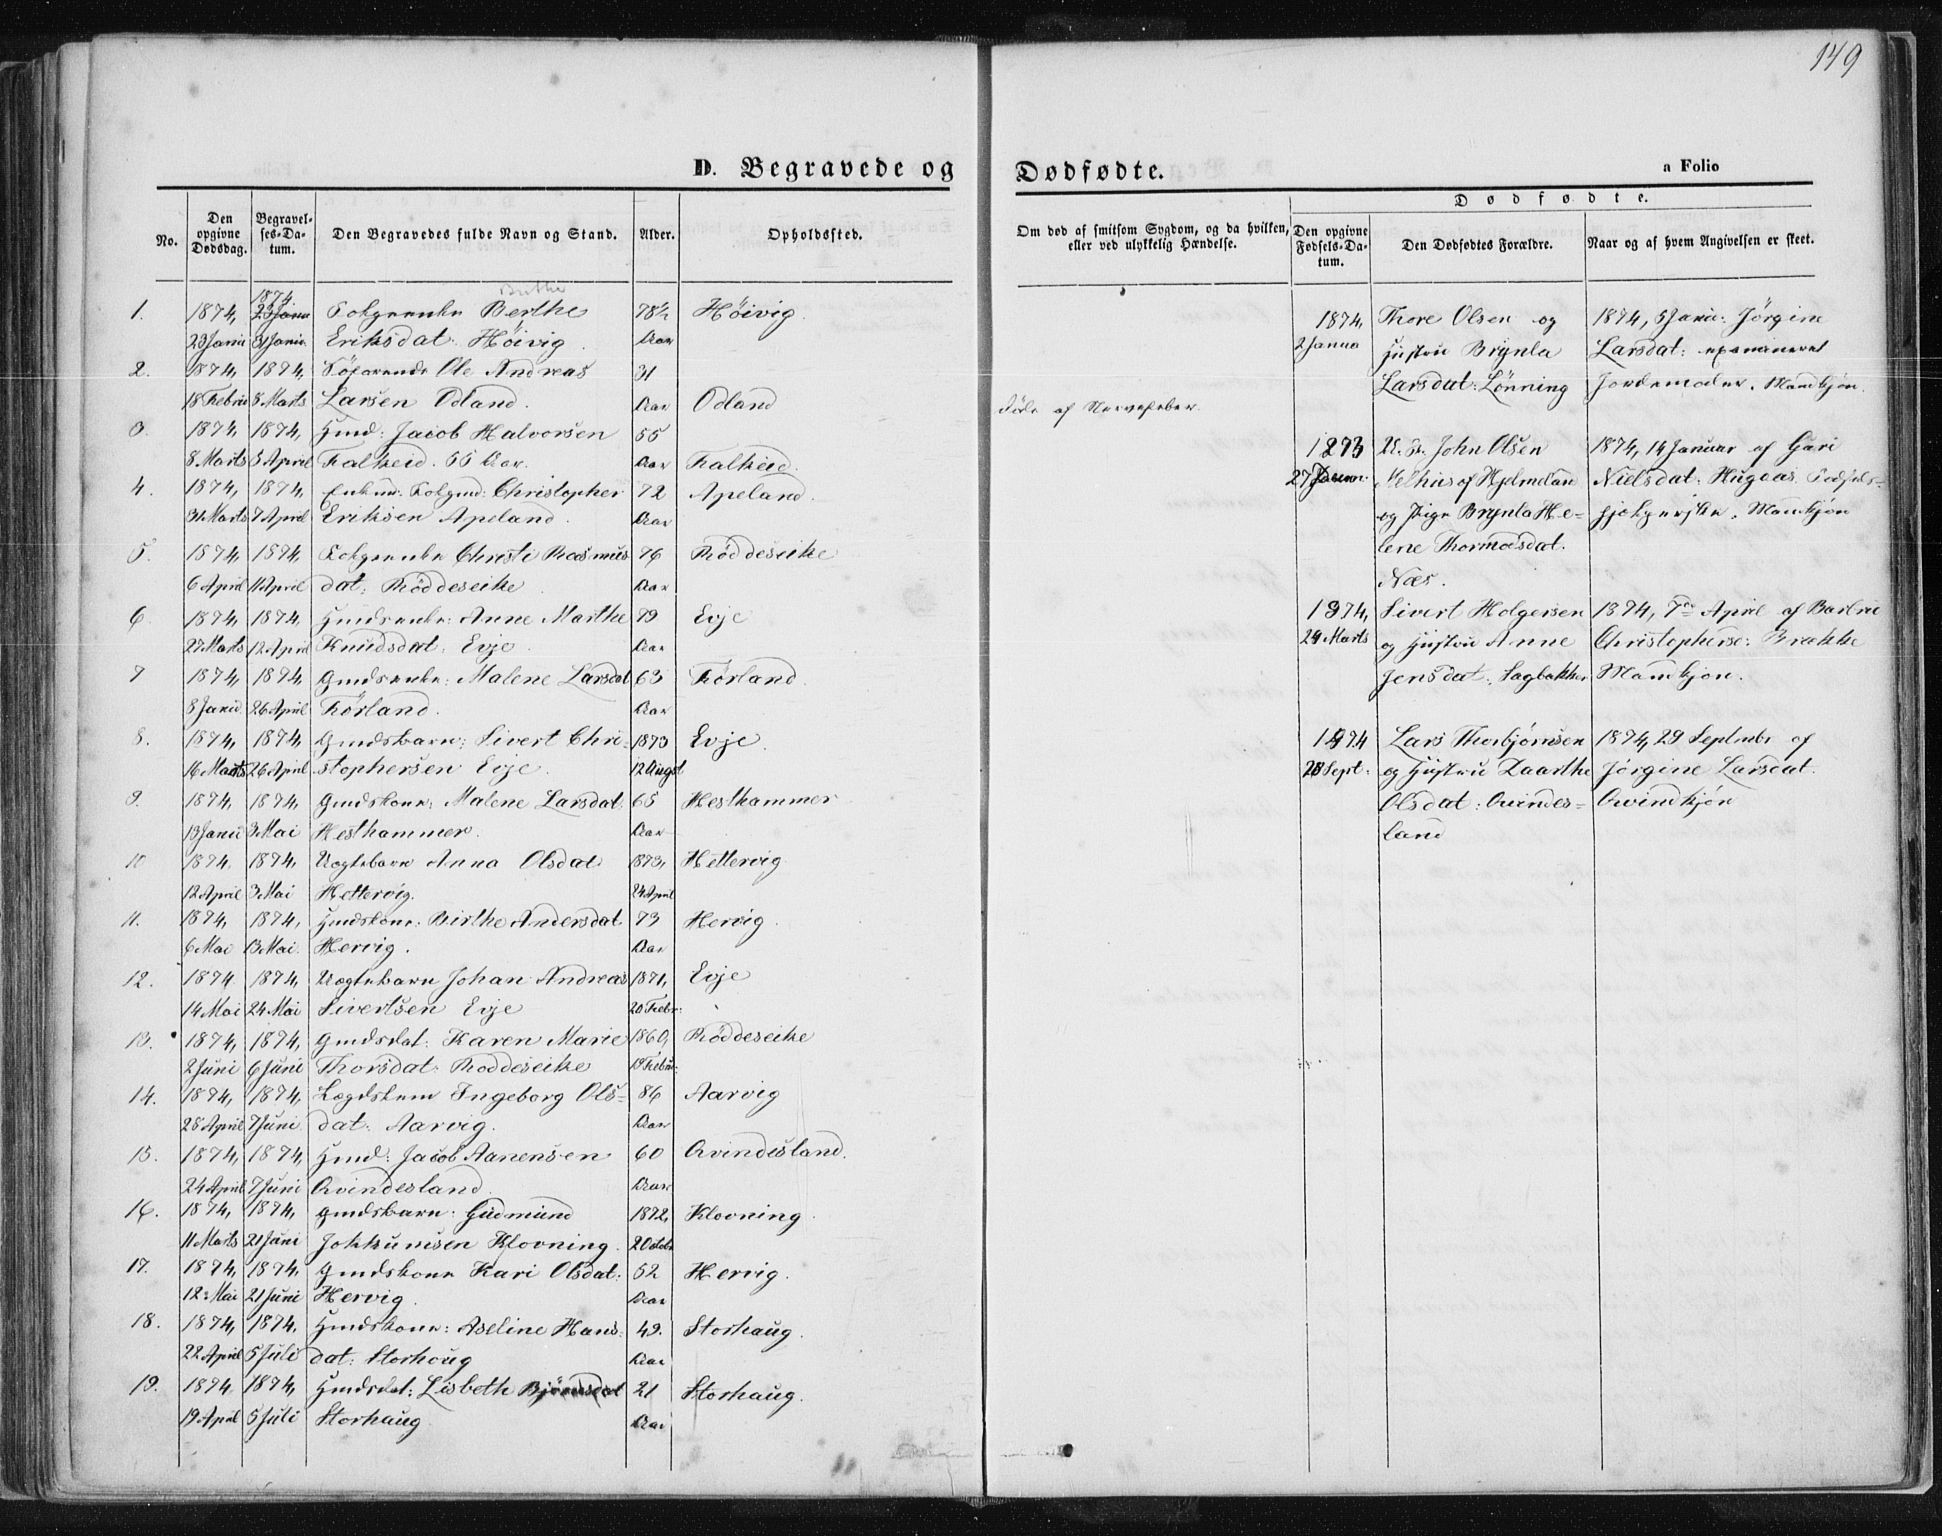 149
D. Begravede og Dødfødte.
a Folio
No.
Den opgivne Dødsdag.
Begravelses-Datum.
Den Begravedes fulde Navn og Stand.
Alder.
Opholdssted.
Om død af smitsom Sygdom, og da hvilken, eller ved ulykkelig Hændelse.
Dødfødte.
Den opgivne Fødsels-Datum.
Den Dødfødtes Forældre.
Naar og af hvem Angivelsen er skeet.
Birthe
1. 1874, 1874 Folgeenke Berthe 78½ Høivig.
23 Janu 31 Janu. Eriksdat: Høivig. Aar
2. 1874, 1874, Søfarende Ole Andreas 31
18 Febru 8 Marts Larsen Odland. Aar Odland
3. 1874, 1874, Gmd: Jacob Halvorsen 55
8 Marts 3 April Falkeid. 55 Aar. Aar Falkeid.
4. 1874, 1874, Enkmd: Folgmd: Christopher 72 Apeland.
31 Marts 7 April Eriksen Apeland. Aar
5. 1874, 1874, Folgeenke Christi Rasmus 76 Røddeseike
6 April 11 April dat: Røddeseike Aar
6. 1874, 1874, Gmdsenke: Anne Marthe 79 Evje
27 Marts 12 April Knudsdat: Evje. Aar
7 1874, 1874, Gmdsenke: Malene Larsdat 63 Førland.
8 Janu. 26 April Førland. Aar
8. 1874, 1874, Gmdsbarn: Sivert Chri- 1873 Evje.
16 Marts 26 April stophersen Evje. 12 Augst
9. 1874, 1874, Gmdskone: Malene Larsdat: 65 Hesthammer
13 Janu 3 Mai Hesthammer. Aar
10 1874, 1874, Uægtebarn Anna Olsdat 1873, Hettervig
12 April 3 Mai Hettervig. 24 April
11. 1874, 1874, Gmdskone: Birthe Andersdat 73 Hervig.
6 Mai 13 Mai. Hervig. Aar
12. 1874 1874, Uægtebarn Johan Andreas 1871, Evje
14 Mai 24 Mai Sivertsen Evje 20 Febr:
13. 1874, 1874, Gmdsdat: Karen Marie 1860, Røddeseike
2 Juni 6 Juni Thorsdat: Roddeseike 19 Febru:
14. 1874, 1874, Lægdslem Ingeborg Ols- 86 Aarvig
28 April 7 Juni dat: Aarvig. Aar
15. 1874, 1874, Gmd: Jacob Aanensen 60 Qvindesland.
24 April 7 Juni Qvindesland Aar
16. 1874, 1874, Gmdsbarn: Gudmund 1872, Klovning.
11 Marts 21 Juni Jokkumsen Klovning. 2 Octobr
17. 1874, 1874, Gmdskone Kari Olsdat: 52 Hervig.
12 Mai 21 Juni Hervig. Aar
18. 1874, 1874, Gmdskone: Aseline Hans: 49. Storhaug.
22 April 5 Juli dat: Storhoug Aar
19. 1874, 1874, Gmdsdat: Lisbeth Bjørnsdat 21 Storhaug.
19 April 5 Juli Storhaug Aar
Døde af Nervefeber.
1874, Thore Olsen og 1874, 5 Janu: Jørgine
2 Janua Hustru Brynla Larsdat: examineret
Larsdat: Lønning Jordemoder. Mandkjøn.
1873 John Olsen 1874, 14 Januar af Guri
27 Melhus af Hjelmeland Nielsdat: Hugaas Fødsels-
og Pige Brynla He- hjelperske. Mandkjøn
lene Thormodsdat.
Næs.
1874, Sivert Holgersen 1874, 7de April af Barbru
29 Marts og Hustru Anne Christopherse: Brække
Jensdat: Sagbakken Mandkjøn.
1874 Lars Thorbjørnsen 1874, 29 Septmbr af
28 Sept: og Hustru Maarthe Jørgine Larsdat.
Olsdat: Qvindes- Qvindkjøn
land